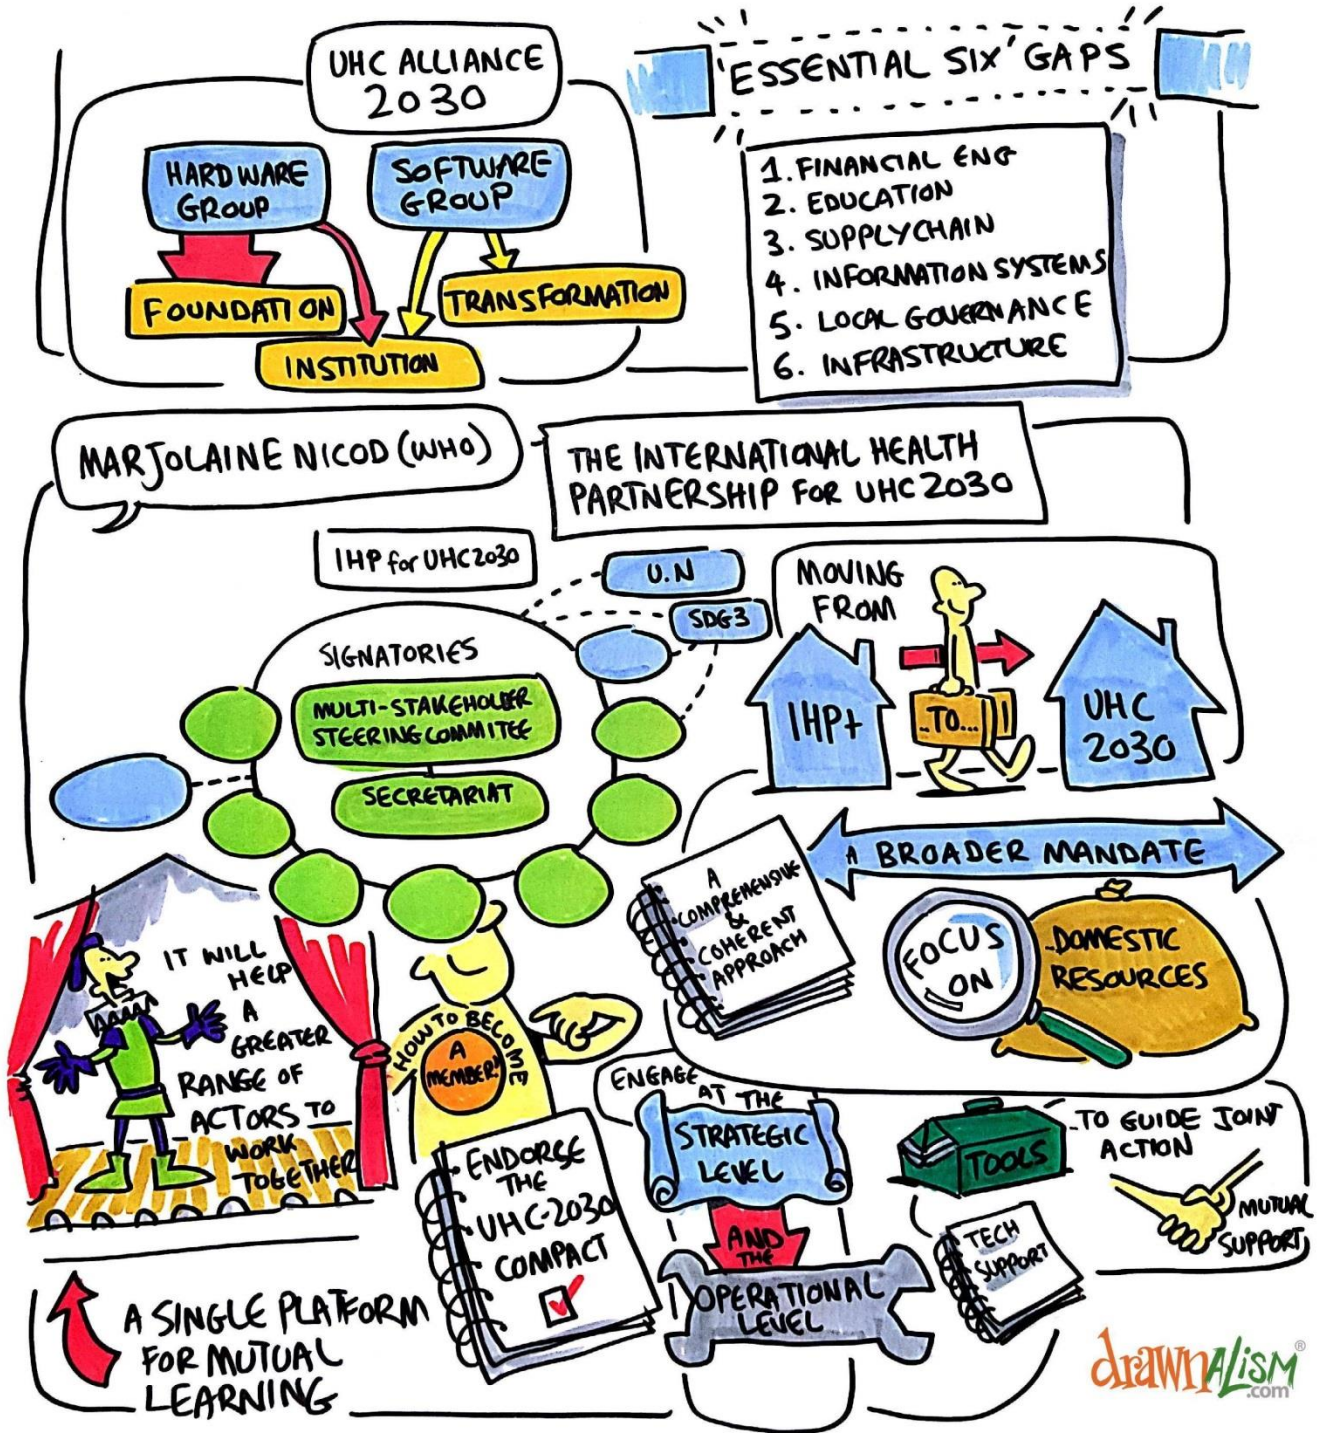 UHC ALLIANCE
2030
HARDWARE
GROUP
SOFTWARE
GROUP
FOUNDATION
TRANSFORMATION
INSTITUTION
'ESSENTIAL SIX' GAPS
1. FINANCIAL ENG
2. EDUCATION
3. SUPPLY CHAIN
4. INFORMATION SYSTEMS
5. LOCAL GOVERNANCE
6. INFRASTRUCTURE
MARJOLAINE NICOD (WHO)
THE INTERNATIONAL HEALTH
PARTNERSHIP FOR UHC 2030
IHP for UHC2030
U.N
SDG3
SIGNATORIES
MULTI-STAKEHOLDER
STEERING COMMITEE
SECRETARIAT
MOVING
FROM
IHP+
..TO...
UHC
2030
A BROADER MANDATE
A
COMPREHENSIVE
&
COHERENT
APPROACH
FOCUS
ON
..DOMESTIC
RESOURCES
IT WILL
HELP
A
GREATER
RANGE OF
ACTORS TO
WORK
TOGETHER
HOW TO BECOME
A
MEMBER!
ENDORSE
THE
UHC-2030
COMPACT
ENGAGE
AT THE
STRATEGIC
LEVEL
AND
THE
OPERATIONAL
LEVEL
TOOLS
..TO GUIDE JOINT
ACTION
TECH
SUPPORT
MUTUAL
SUPPORT
A SINGLE PLATFORM
FOR MUTUAL
LEARNING
drawnALISM®
.com